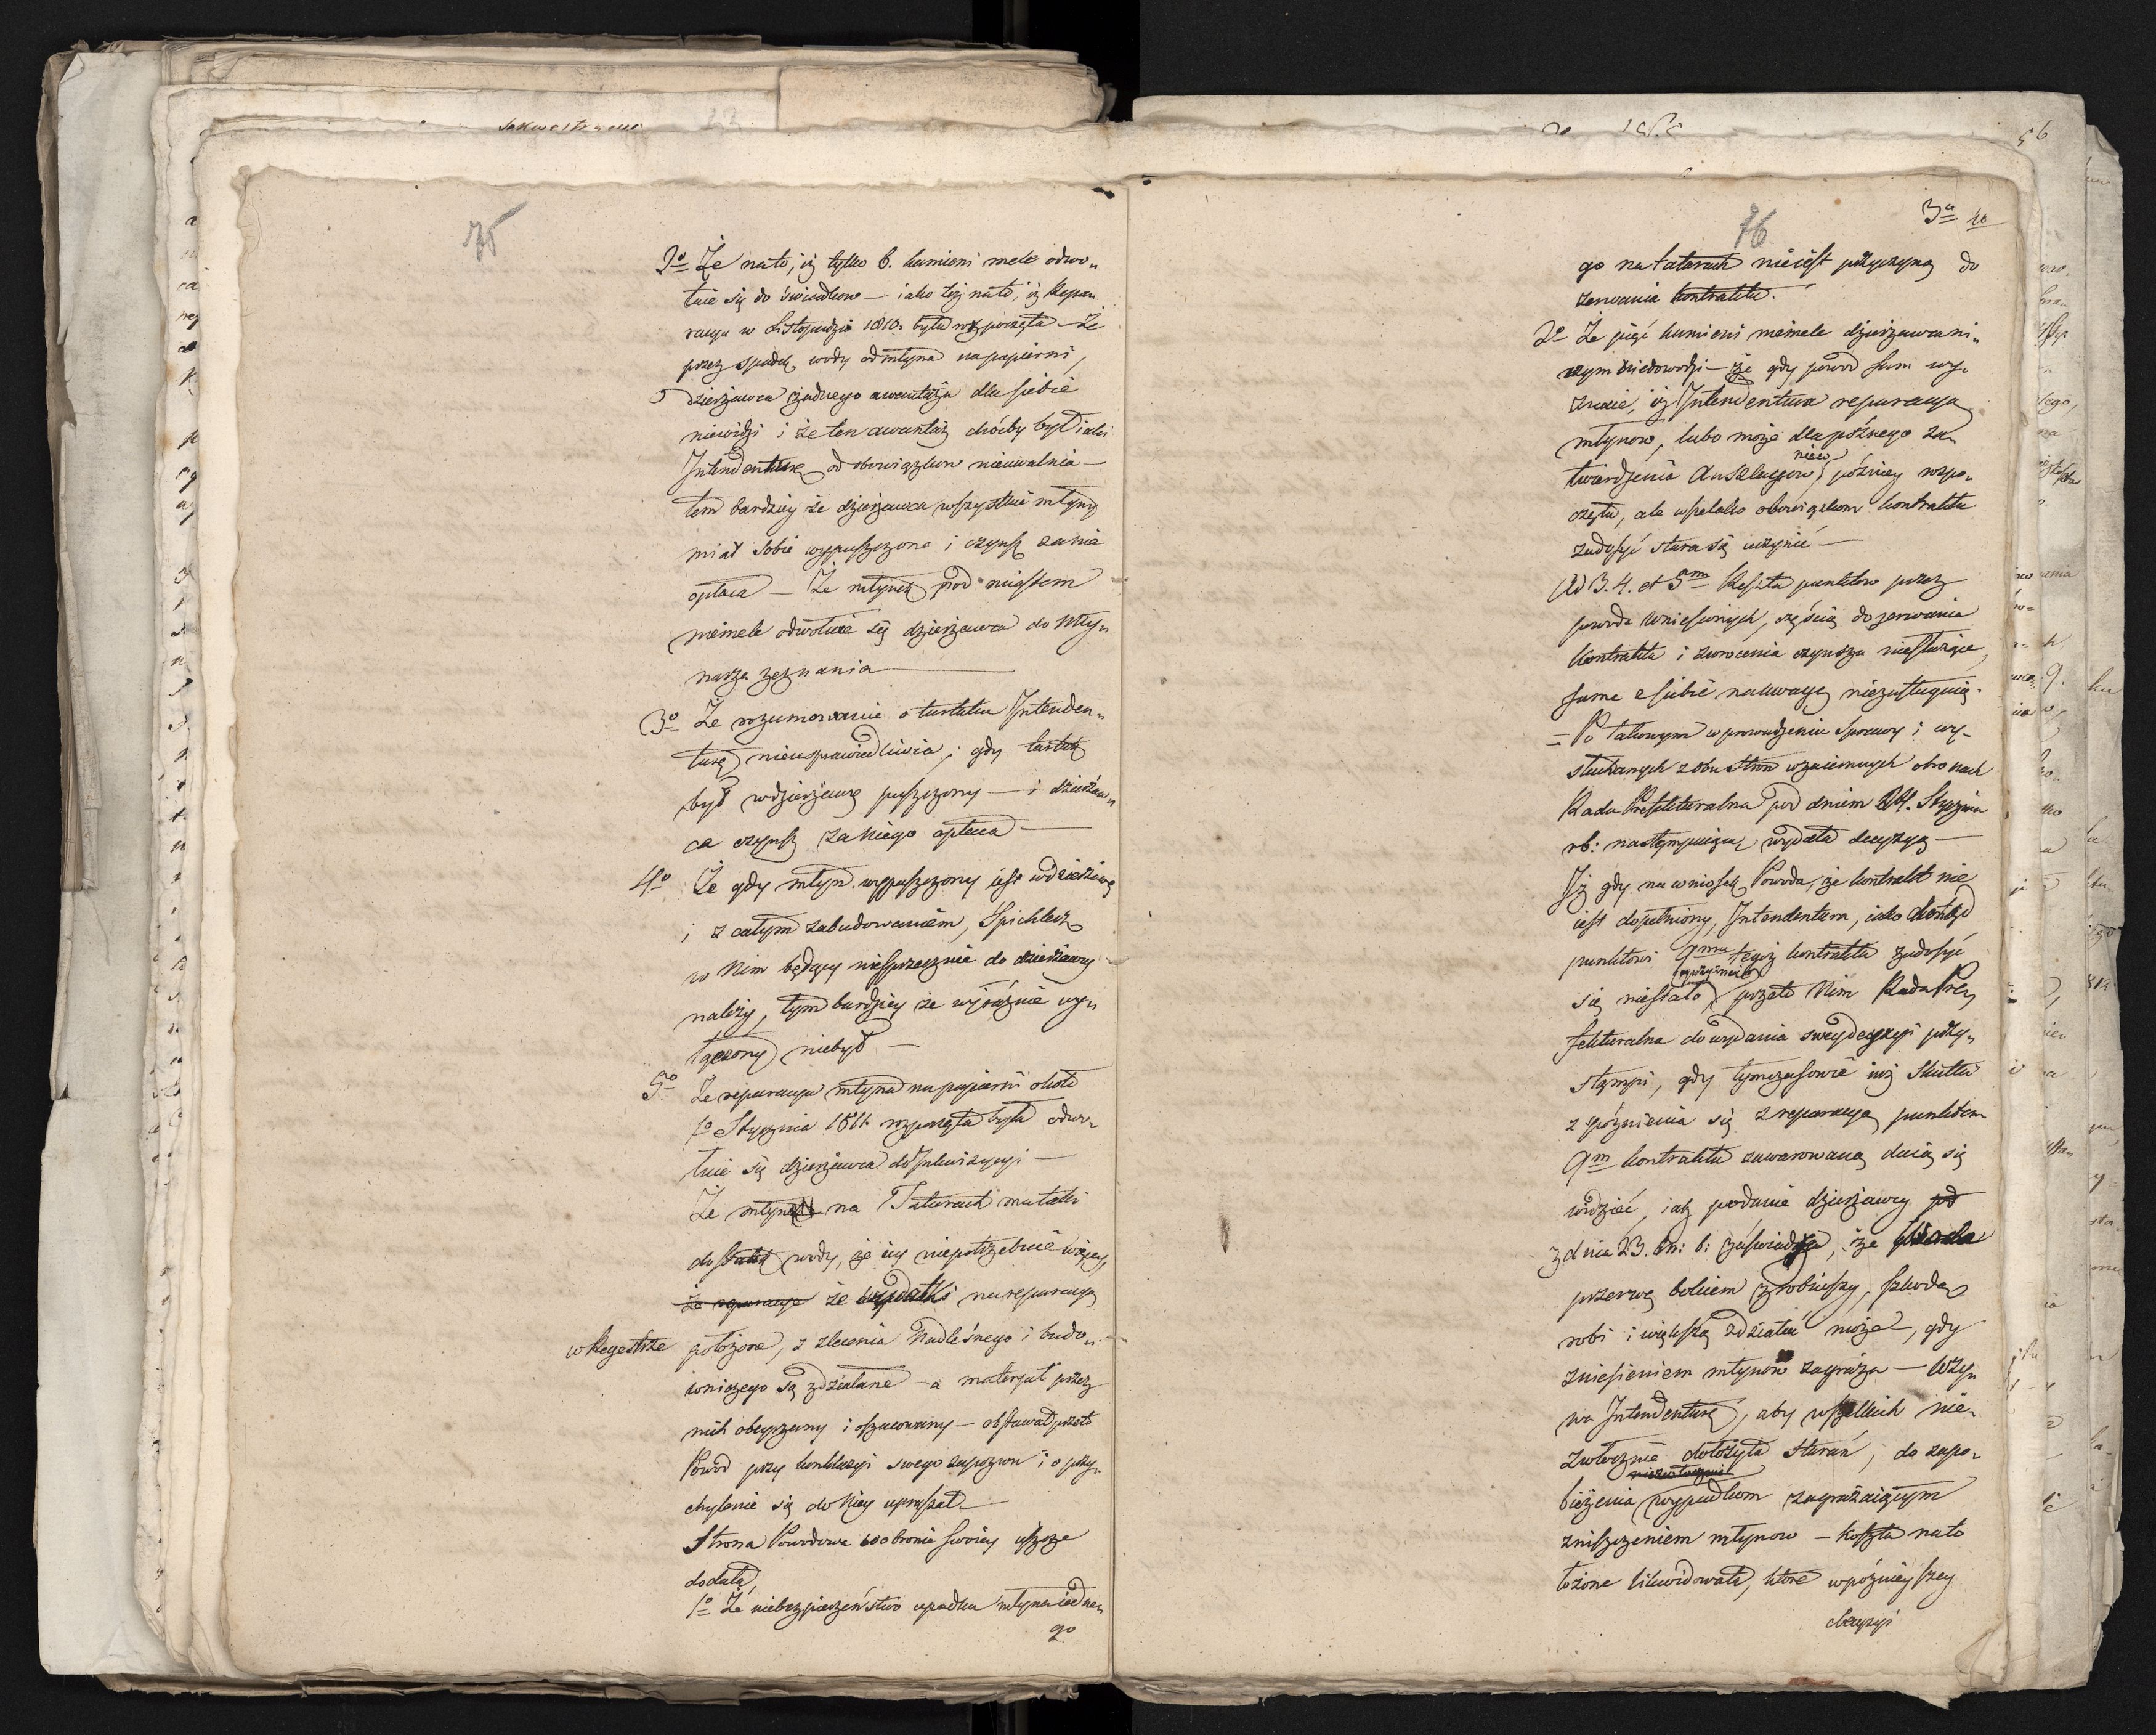 Sekwestracyi
75
2º Że nato, iż tylko 6. kamieni mele odwo„
łuie się do świadkow — iako też nato, iż Repa„
racya w Listopadzie 1810. była rozpoczęta — Że
przez spadek wody od młyna na papierni,
dzierżawca żadnego awantażu dla siebie
niewidzi i że ten awantaż choćby był iaki
Intendenturę od obowiązkow nieuwalnia —
tem bardziey że dzierżawca wszystkie młyny
miał sobie wypuszczone i czynsz zanie
opłaca — Że młynek pod miastem
niemele odwołuie się dzierżawca do Mły„
narza zeznania —
3º Że rozumowanie o tartaku Intenden„
turę nieusprawiedliwia, gdy tartak
był wdzierżawę puszczony — i dzierżaw„
ca czynsz za Niego opłaca —
4º Że gdy młyn wypuszczony iest wdzierżawę
i z całym zabudowaniem, Spichlerz
w Nim będący niesprzecznie do dzierżawy
należy, tym bardziey że wyraźnie wy„
łączony niebył —
5º Że reparacya młyna na papierni około
1º Stycznia 1811. rozpoczęta była odwo„
łuie się dzierżawca do Inkwizycyi —
Że młynek na Tatarach ma taki
dostatek wody, że iey niepotrzebuie więcey,
że reparacye że wydatki na reparacyą
w Regestrze położone, z zlecenia Nadleśnego i budo„
wniczego są zdziałane — a materyał przez
nich obeyrzany i oszacowany — obstawał przeto
Powod przy konkluzyi swego zapozwu i o przy„
chylenie się do Niey upraszał —
Strona Powodowa w obronie swoiey ieszcze
dodała,
1º Że niebezpieczeństwo upadku młyna iedne„
go
56
76
3º
go na tatarach nieiest przyczyną do
zerwania kontraktu.
2º Że pięć kamieni niemele dzierżawca ni„
czym niedowodzi — że gdy powod sam wy„
znaie, iż Intendentura reparacyą
młynow, lubo może dla późnego za„
niew
twierdzenia Anszlagow, późniey rozpo„
częła, ale wszelako obowiązkom kontraktu
zadosyć stara się uczynić —
Ad 3. 4. et 5m Reszta punktow przez
powoda wniesionych, częścią do zerwania
kontraktu i zwrocenia czynszu niesłużące,
same z siebie na uwagę niezasługuią.
= Po takowym wprowadzeniu Sprawy i wy„
słuchanych z obu stron wzaiemnych obronach
Rada Prefekturalna pod dniem 24. Stycznia
rb: następuiącą wydała decyzyą —
Iż gdy na wniosek Powoda, że kontrakt nie
iest dopełniony, Intendentura, iako dotąd
punktowi 9mu tegoż kontraktu zadosyć
się niestało, przeto Nim Rada Pre„
fekturalna do wydania swey decyzyi przy„
stąpi, gdy tymczasowie iuż skutki
z spoźnienia się z reparacyą punktem
9m kontraktu zawarowaną daią się
widzieć, iak podanie dzierżawcy pod
z dnia 23. bm: b: zaświadcza, że
przerwę bokiem zrobiwszy, szkodę
robi i większą zdziałać może, gdy
zniesieniem młynow zagraża — Wzy„
wa Intendenturę, aby wszelkich nie„
zwłocznie dołożyła starań, do zapo„
niezwłocznie
bieżenia wypadkom zagrażaiącym
zniszczeniem młynow — koszta nato
łożone likwidowała, ktore w poźnieyszey
decyzyi